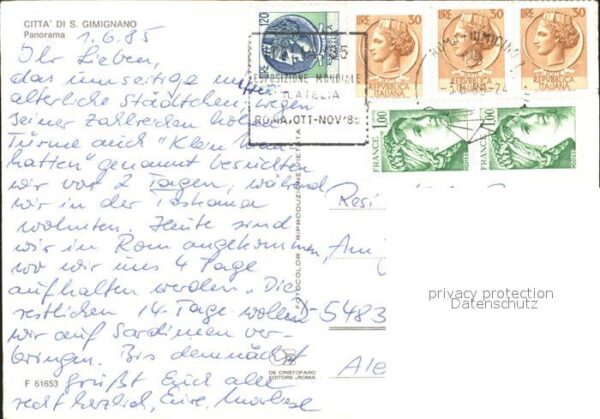 CITTA' DI S. GIMIGNANO
Panorama
1.6.85
Ihr Lieben,
das umseitige mittel-
alterliche Städtchen, wegen
seiner zahlreichen hohen
Türme auch "Klein Man
hatten" genannt besuchten
wir vor 2 Tagen, während
wir in der Toskana
wohnten. Heute sind
wir in Rom angekommen,
wo wir uns 4 Tage
aufhalten werden. Die
restlichen 14 Tage wollen
wir auf Sardinien ver-
bringen. Bis demnächst
grüßt Euch alle
recht herzlich, Eure
F 61653
FOTOCOLOR RIPRODUZIONE VIETATA
DE CRISTOFARO
EDITORE - ROMA
ESPOSIZIONE MONDIALE
FILATELIA
ROMA, OTT-NOV '85
LIRE 30
REPUBBLICA
ITALIANA
LIRE 30
REPUBBLICA
ITALIANA
LIRE 30
REPUBBLICA
ITALIANA
120
FRANCE 1,00
FRANCE 1,00
Resi
Am
D-5483
privacy protection
Datenschutz